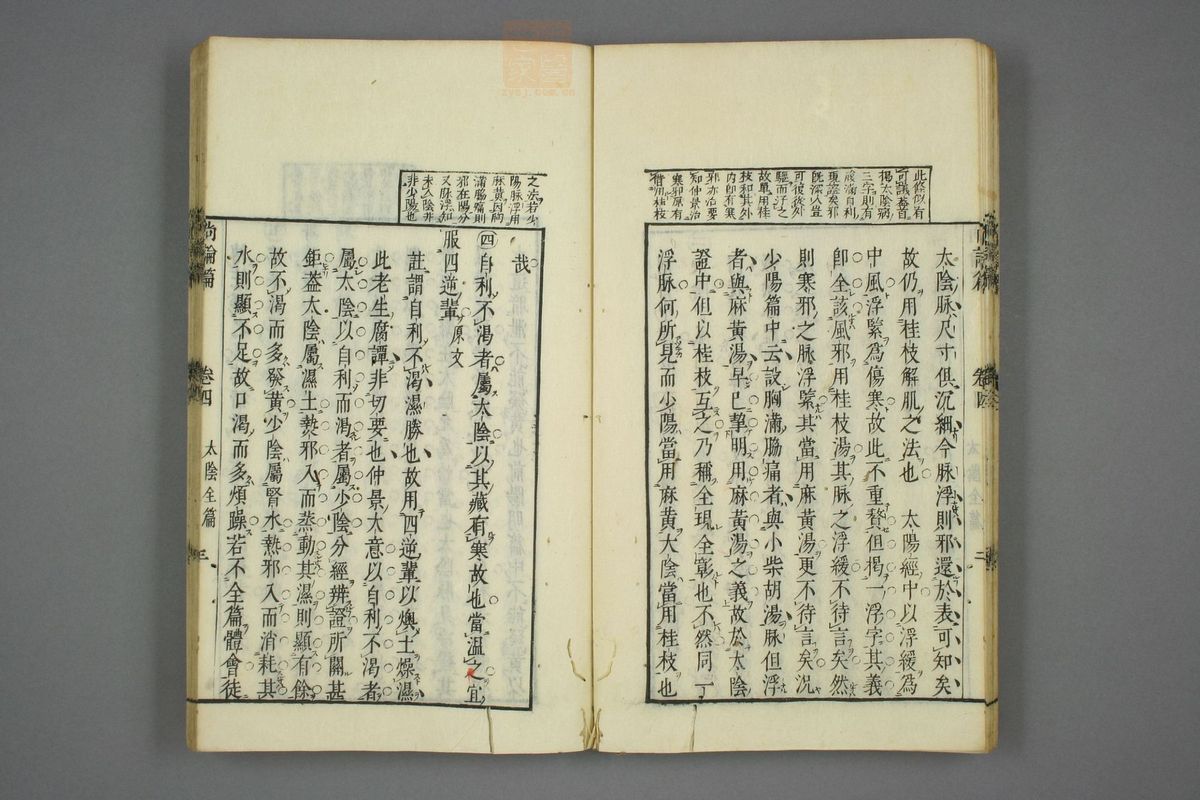 此條似有
可議蓋首
揭太陰病
三字則有
腹滿自利
裏證矣邪
既深入豈
可復從外
驅而汗之
故單用桂
枝和其外
内即有寒
邪亦治要
知仲景治
寒邪原有
太陰脉尺寸俱沉細今脉浮則邪還於表可知矣
故仍用桂枝解肌之法也 太陽經中以浮緩爲
中風浮緊爲傷寒故此不重贅但揭一浮字其義
即全該風邪用桂枝湯其脉之浮緩不待言矣然
則寒邪之脉浮緊其當用麻黄湯更不待言矣况
少陽篇中云設胸滿脇痛者與小柴胡湯脉但浮
者與麻黄湯早已挈明用麻黄湯之義故於太陰
證中但以桂枝互之乃稱全現全彰也不然同一
浮脉何所見而少陽當用麻黄太陰當用桂枝也
太陰全篇
之法若少
陽脉浮用
麻黄因胸
滿脇痛則
邪在陽分
又脉浮知
未入陰非
非少陽也
哉
四自利不渴者屬太陰以其藏有寒故也當温之宜
服四逆輩原文
註謂自利不渴濕勝也故用四逆輩以燠土燥濕
此老生腐譚非切要也仲景大意以自利不渴者
屬太陰以自利而渴者屬少陰分經辨證所關甚
鉅葢太陰屬濕土熱邪入而蒸動其濕則顯有餘
故不渴而多發黄少陰屬腎水熱邪入而消耗其
水則顯不足故口渴而多煩躁若不全篇體會徒
尚論篇 卷四 太陰全篇 三